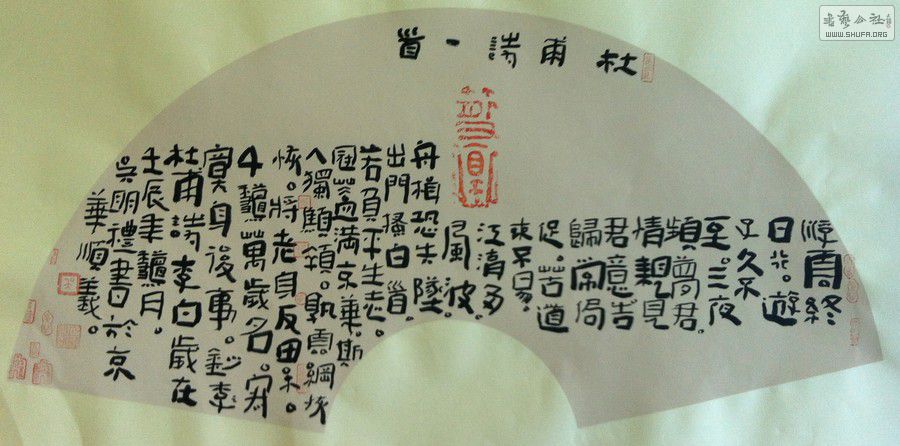 杜甫詩一首
浮雲終
日行。遊
子久不
至。三夜
頻夢君。
情親見
君意告
歸常局
促。苦道
來不易。
江湖多
風波。
舟楫恐失墜。
出門搔白首。
若負平生志。
冠蓋滿京華。斯
人獨顦顇。孰雲網恢
恢。將老身反累。
千龝萬歲名。寂
寞身後事。鈔李
杜甫詩李白歲在
壬辰年龝月。
吳明禮書於京
華順義。
書藝公社
WWW.SHUFA.ORG